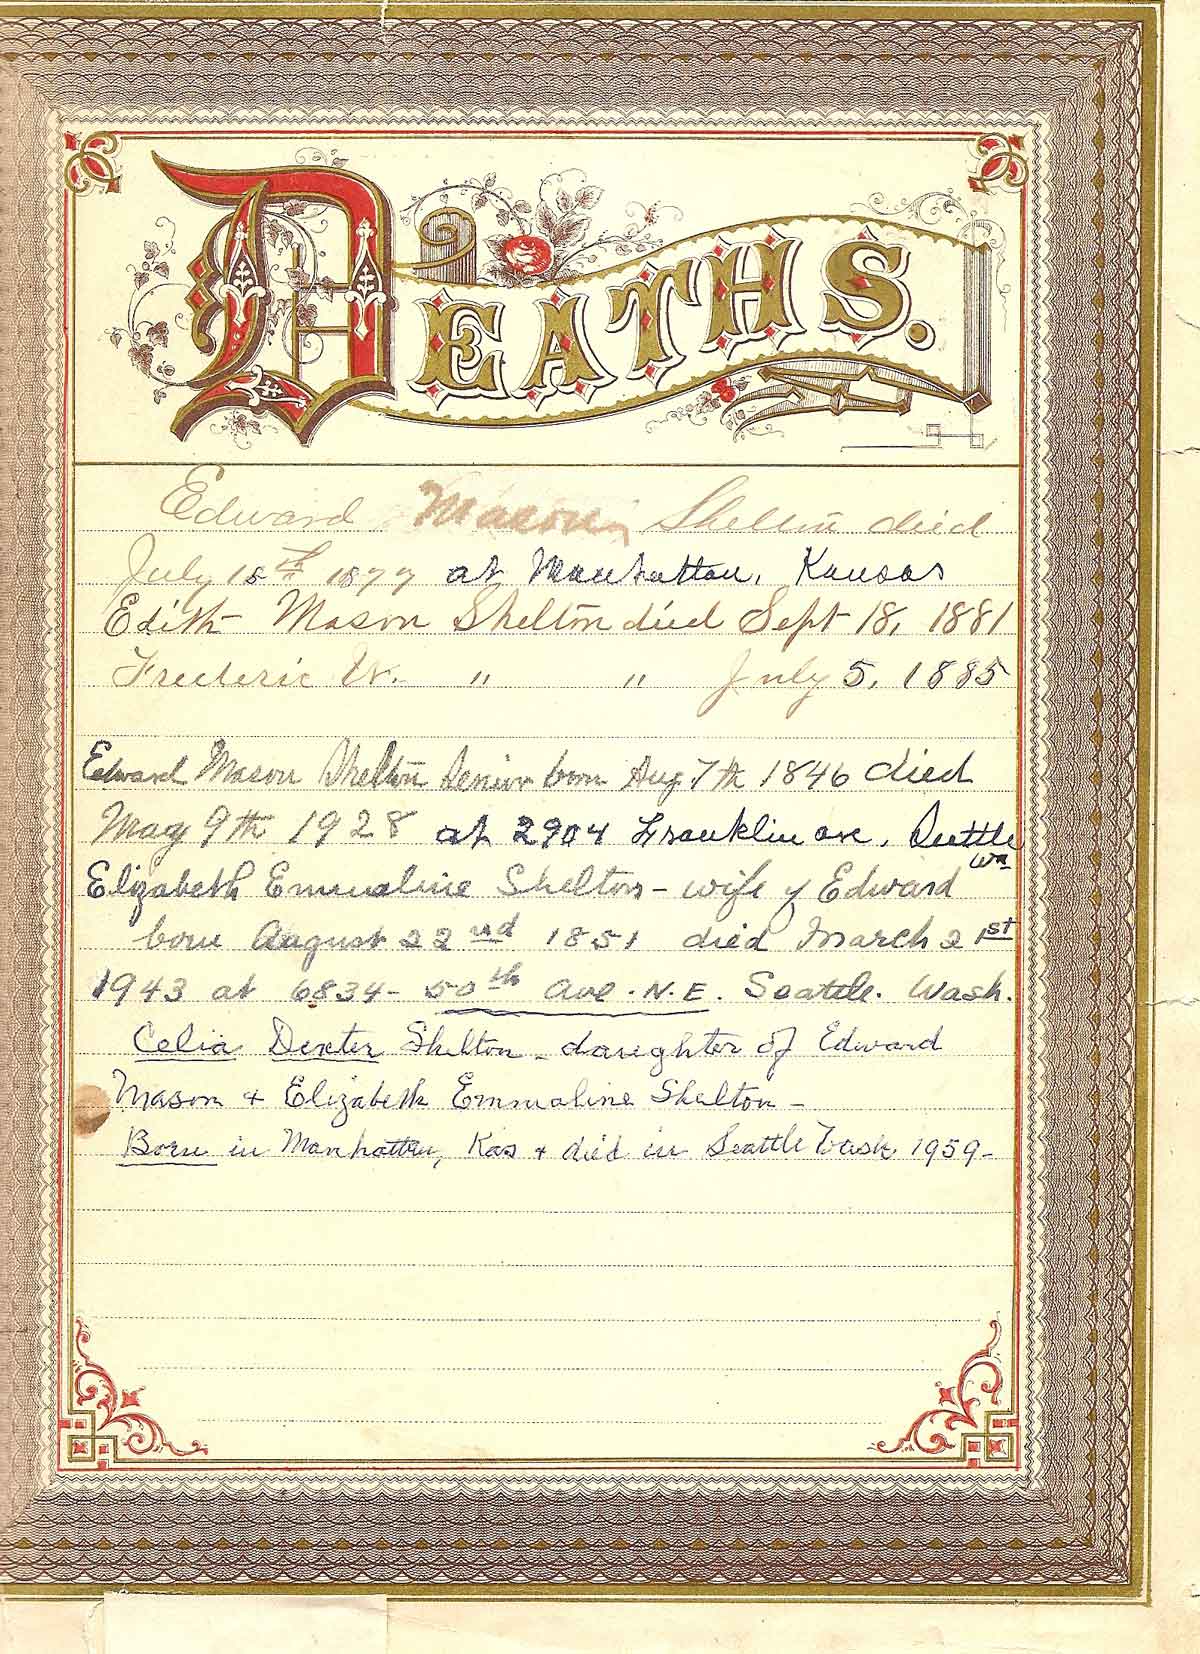 DEATHS.
Edward Mason Shelton died
July 15th 1877 at Manhattan, Kansas
Edith Mason Shelton died Sept 18, 1881
Frederic W. " " July 5, 1885
Edward Mason Shelton Senior born Aug 7th 1846 died
May 9th 1928 at 2904 Franklin ave, Seattle
Wn
Elizabeth Emmaline Shelton - wife of Edward
born August 22nd 1851 died March 21st
1943 at 6834- 50th Ave. N.E. Seattle. Wash.
Celia Dexter Shelton - daughter of Edward
Mason + Elizabeth Emmaline Shelton -
Born in Manhattan, Kas + died in Seattle Wash. 1959 -